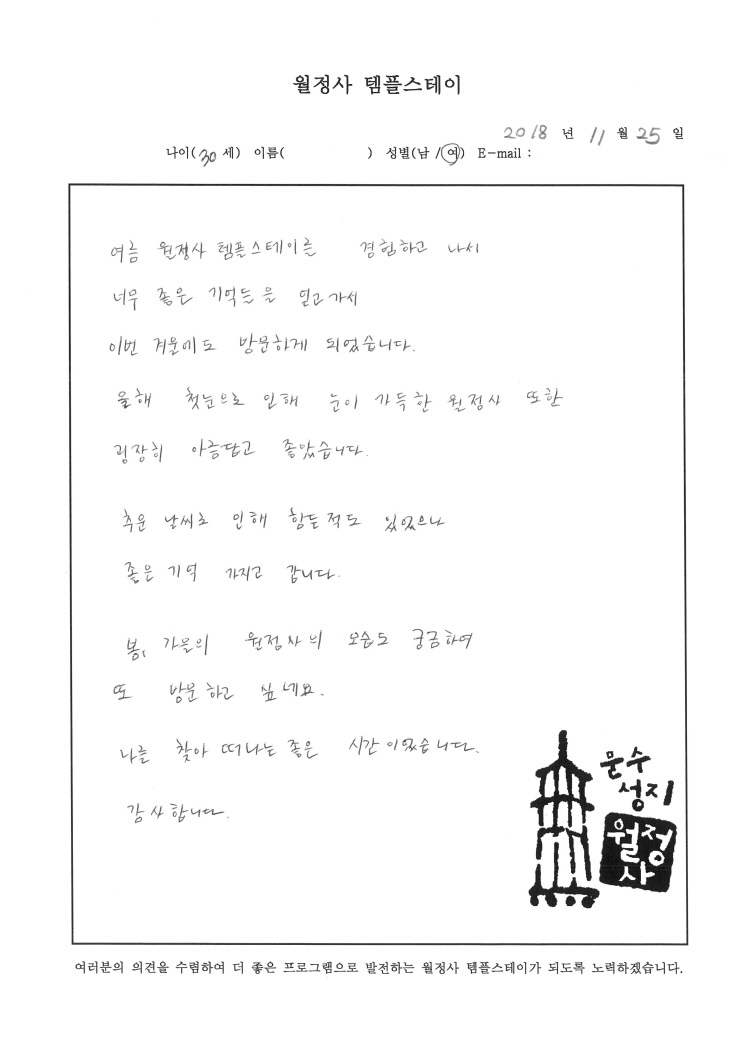 월정사 템플스테이
2018 년 11 월 25 일
나이( 30 세) 이름( ) 성별(남 / 여) E-mail :
여름 월정사 템플스테이를 경험하고 나서
너무 좋은 기억들을 얻고가서
이번 겨울에도 방문하게 되었습니다.
올해 첫눈으로 인해 눈이 가득한 월정사 또한
굉장히 아름답고 좋았습니다.
추운 날씨로 인해 힘든적도 있었으나
좋은 기억 가지고 갑니다.
봄, 가을의 월정사의 모습도 궁금하여
또 방문하고 싶네요.
나를 찾아 떠나는 좋은 시간이었습니다.
감사합니다.
문수
성지
월정
사
여러분의 의견을 수렴하여 더 좋은 프로그램으로 발전하는 월정사 템플스테이가 되도록 노력하겠습니다.